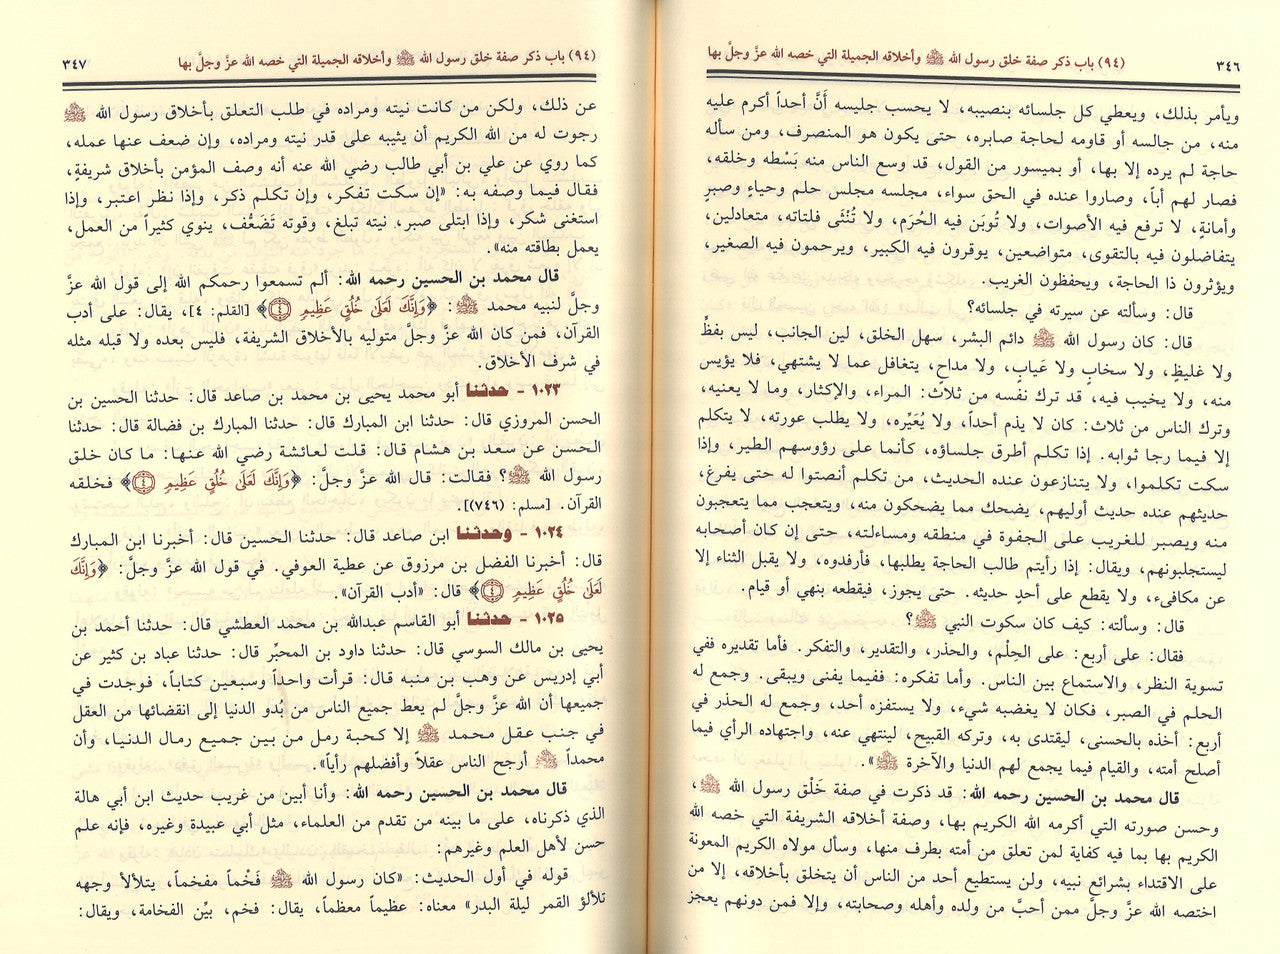 ٣٤٦
(٩٤) باب ذكر صفة خلق رسول الله ﷺ وأخلاقه الجميلة التي خصه الله عزَّ وجلَّ بها
ويأمر بذلك، ويعطي كل جلسائه بنصيبه، لا يحسب جليسه أنَّ أحداً أكرم عليه
منه، من جالسه أو قاومه لحاجة صابره، حتى يكون هو المنصرف، ومن سأله
حاجة لم يرده إلا بها، أو بميسور من القول، قد وسع الناس منه بَسْطه وخلقه،
فصار لهم أباً، وصاروا عنده في الحق سواء، مجلسه مجلس حلم وحياءٍ وصبرٍ
وأمانةٍ، لا ترفع فيه الأصوات، ولا تُوبَن فيه الحُرَم، ولا تُنْثَى فلتاته، متعادلين،
يتفاضلون فيه بالتقوى، متواضعين، يوقرون فيه الكبير، ويرحمون فيه الصغير،
ويؤثرون ذا الحاجة، ويحفظون الغريب.
قال: وسألته عن سيرته في جلسائه؟
قال: كان رسول الله ﷺ دائم البشر، سهل الخلق، لين الجانب، ليس بفظٍّ
ولا غليظٍ، ولا سخابٍ ولا عَيابٍ، ولا مداحٍ، يتغافل عما لا يشتهي، فلا يؤيس
منه، ولا يخيب فيه، قد ترك نفسه من ثلاث: المراء، والإكثار، وما لا يعنيه،
وترك الناس من ثلاث: كان لا يذم أحداً، ولا يُعَيِّره، ولا يطلب عورته، لا يتكلم
إلا فيما رجا ثوابه. إذا تكلم أطرق جلساؤه، كأنما على رؤوسهم الطير، وإذا
سكت تكلموا، ولا يتنازعون عنده الحديث، من تكلم أنصتوا له حتى يفرغ،
حديثهم عنده حديث أوليهم، يضحك مما يضحكون منه، ويتعجب مما يتعجبون
منه ويصبر للغريب على الجفوة في منطقه ومساءلته، حتى إن كان أصحابه
ليستجلبونهم، ويقال: إذا رأيتم طالب الحاجة يطلبها، فأرفدوه، ولا يقبل الثناء إلا
عن مكافىء، ولا يقطع على أحدٍ حديثه. حتى يجوز، فيقطعه بنهي أو قيام.
قال: وسألته: كيف كان سكوت النبي ﷺ؟
فقال: على أربع: على الحِلْم، والحذر، والتقدير، والتفكر. فأما تقديره ففي
تسوية النظر، والاستماع بين الناس. وأما تفكره: ففيما يفنى ويبقى. وجمع له
الحلم في الصبر، فكان لا يغضبه شيء، ولا يستفزه أحد، وجمع له الحذر في
أربع: أخذه بالحسنى، ليقتدى به، وتركه القبيح، لينتهي عنه، واجتهاده الرأي فيما
أصلح أمته، والقيام فيما يجمع لهم الدنيا والآخرة ﷺ».
قال محمد بن الحسين رحمه الله: قد ذكرت في صفة خَلْق رسول الله ﷺ،
وحسن صورته التي أكرمه الله الكريم بها، وصفة أخلاقه الشريفة التي خصه الله
الكريم بها بما فيه كفاية لمن تعلق من أمته بطرف منها، وسأل مولاه الكريم المعونة
على الاقتداء بشرائع نبيه، ولن يستطيع أحد من الناس أن يتخلق بأخلاقه، إلا من
اختصه الله عزَّ وجلَّ ممن أحبَّ من ولده وأهله وصحابته، وإلا فمن دونهم يعجز
(٩٤) باب ذكر صفة خلق رسول الله ﷺ وأخلاقه الجميلة التي خصه الله عزَّ وجلَّ بها
٣٤٧
عن ذلك، ولكن من كانت نيته ومراده في طلب التعلق بأخلاق رسول الله ﷺ
رجوت له من الله الكريم أن يثيبه على قدر نيته ومراده، وإن ضعف عنها عمله،
كما روي عن علي بن أبي طالب رضي الله عنه أنه وصف المؤمن بأخلاق شريفةٍ،
فقال فيما وصفه به: «إن سكت تفكر، وإن تكلم ذكر، وإذا نظر اعتبر، وإذا
استغنى شكر، وإذا ابتلى صبر، نيته تبلغ، وقوته تَضَعُّف، ينوي كثيراً من العمل،
يعمل بطاقته منه».
قال محمد بن الحسين رحمه الله: ألم تسمعوا رحمكم الله إلى قول الله عزَّ
وجلَّ لنبيه محمد ﷺ: ﴿وَإِنَّكَ لَعَلَىٰ خُلُقٍ عَظِيمٍ ۝٤﴾ [القلم: ٤]، يقال: على أدب
القرآن، فمن كان الله عزَّ وجلَّ متوليه بالأخلاق الشريفة، فليس بعده ولا قبله مثله
في شرف الأخلاق.
١٠٢٣ - حدثنا أبو محمد يحيى بن محمد بن صاعد قال: حدثنا الحسين بن
الحسن المروزي قال: حدثنا ابن المبارك قال: حدثنا المبارك بن فضالة قال: حدثنا
الحسن عن سعد بن هشام قال: قلت لعائشة رضي الله عنها: ما كان خلق
رسول الله ﷺ؟ فقالت: قال الله عزَّ وجلَّ: ﴿وَإِنَّكَ لَعَلَىٰ خُلُقٍ عَظِيمٍ ۝٤﴾ فخلقه
القرآن. [مسلم: (٧٤٦)].
١٠٢٤ - وحدثنا ابن صاعد قال: حدثنا الحسين قال: أخبرنا ابن المبارك
قال: أخبرنا الفضل بن مرزوق عن عطية العوفي. في قول الله عزَّ وجلَّ: ﴿وَإِنَّكَ
لَعَلَىٰ خُلُقٍ عَظِيمٍ ۝٤﴾ قال: «أدب القرآن».
١٠٢٥ - حدثنا أبو القاسم عبدالله بن محمد العطشي قال: حدثنا أحمد بن
يحيى بن مالك السوسي قال: حدثنا داود بن المحبَّر قال: حدثنا عباد بن كثير عن
أبي إدريس عن وهب بن منبه قال: قرأت واحداً وسبعين كتاباً، فوجدت في
جميعها أن الله عزَّ وجلَّ لم يعط جميع الناس من بُدو الدنيا إلى انقضائها من العقل
في جنب عقل محمد ﷺ إلا كحبة رمل من بين جميع رمال الدنيا، وأن
محمداً ﷺ أرجح الناس عقلاً وأفضلهم رأياً».
قال محمد بن الحسين رحمه الله: وأنا أبين من غريب حديث ابن أبي هالة
الذي ذكرناه، على ما بينه من تقدم من العلماء، مثل أبي عبيدة وغيره، فإنه علم
حسن لأهل العلم وغيرهم:
قوله في أول الحديث: «كان رسول الله ﷺ فَخْماً مفخماً، يتلألأ وجهه
تلألؤ القمر ليلة البدر» معناه: عظيماً معظماً، يقال: فخم، بيِّن الفخامة، ويقال: